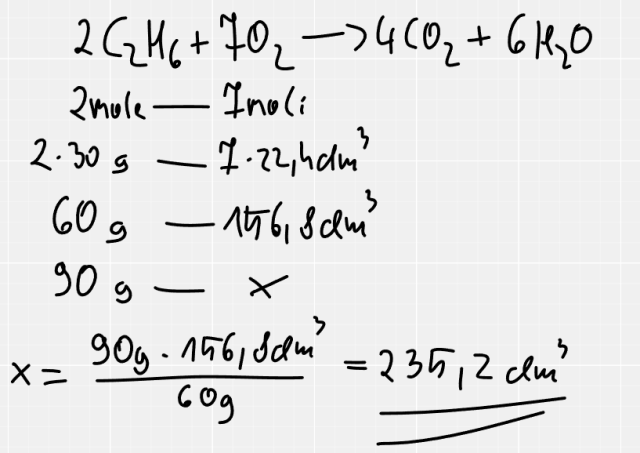 2C₂H₆ + 7O₂ → 4CO₂ + 6H₂O
2mole — 7moli
2·30 g — 7·22,4dm³
60 g — 156,8dm³
90 g — x
x = 90g · 156,8dm³ / 60g = 235,2 dm³